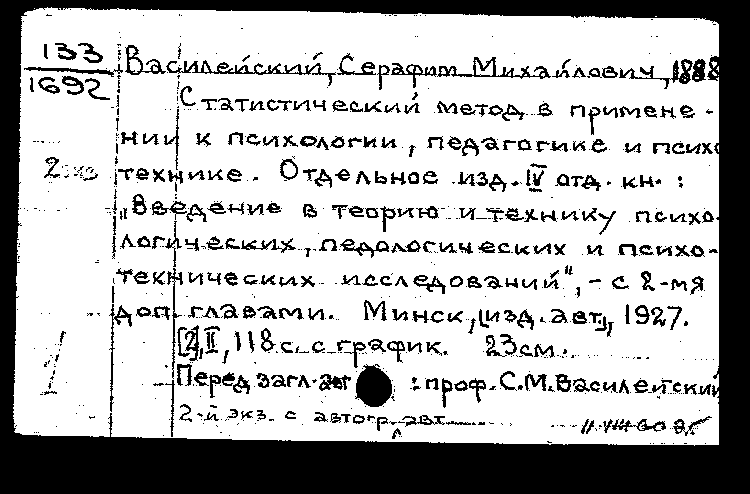 133
1692
Василейский, Серафим Михайлович, 1888
Статистический метод в примене-
нии к психологии, педагогике и психо
2 экз
технике. Отдельное изд. IV отд. кн. :
„Введение в теорию и технику психо-
логических, педологических и психо-
технических исследований", - с 2-мя
доп. главами. Минск, [изд. авт.], 1927.
[2], II, 118 с. с график. 23 см.
Перед загл. авт : проф. С.М. Василейский
2-й экз. с автогр. авт.